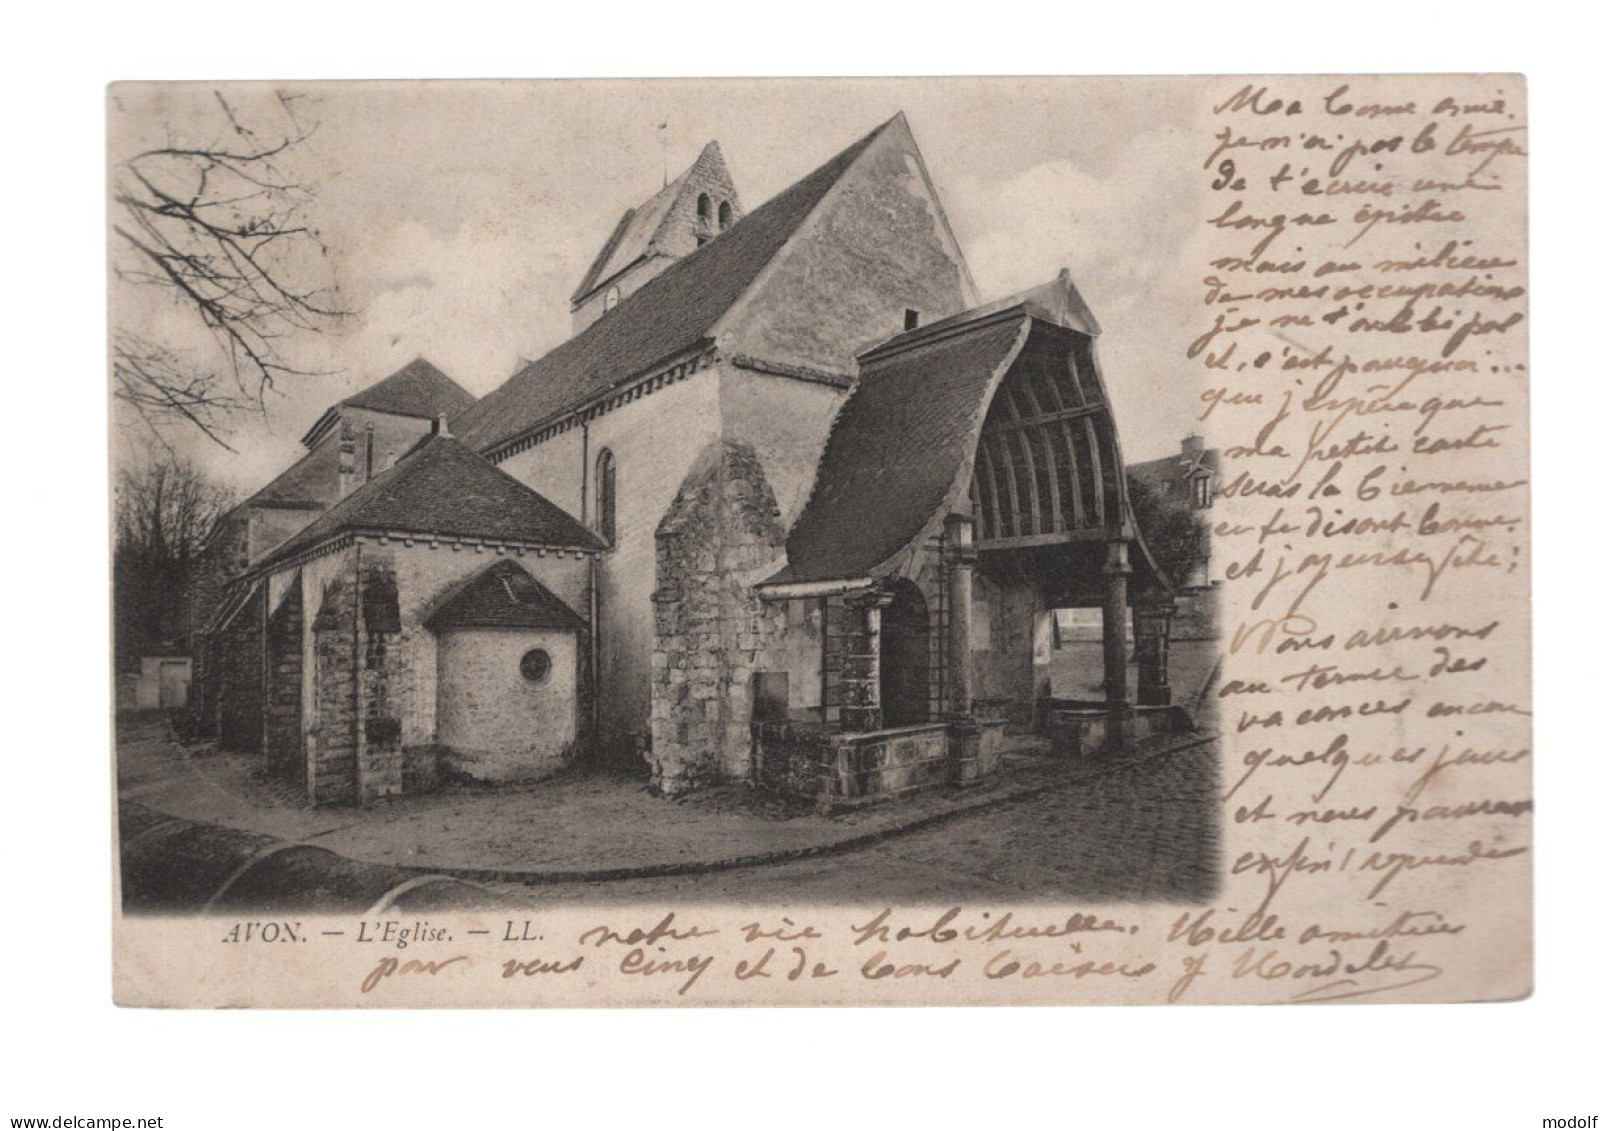 Ma bonne amie.
Je n'ai pas le temps
de t'écrire une
longue épistre
mais au milieu
de mes occupations
je ne t'oublie pas
et, c'est pourquoi...
que j'espère que
ma petite carte
seras la bienvenue
en te disant bonne
et joyeuse fête;
Nous arrivons
au terme des
vacances encore
quelques jours
et nous pourrons
enfin reprendre
AVON. — L'Eglise. — LL.
notre vie habituelle. Mille amitiés
pour vous cinq et de bons baisers
delcampe.net
modolf